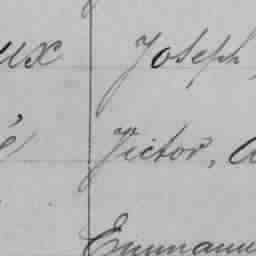 ux Joseph,
é Victor, A
Emmanu